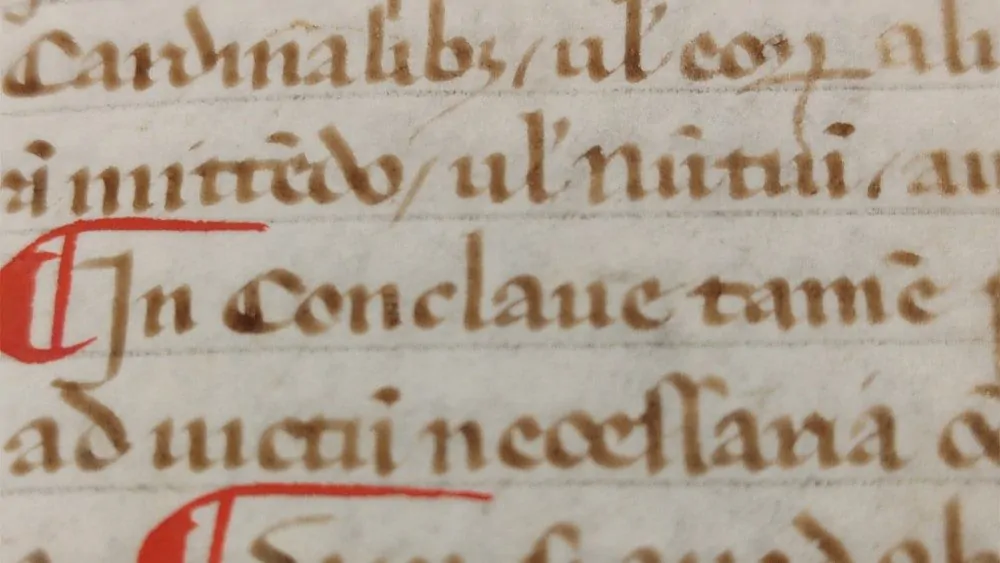 Cardīalibꝫ / ul' eoꝝ ali
rā mittēdo / ul' nūtiū / au
¶ In Conclaue tamē
ad uictū necessaria